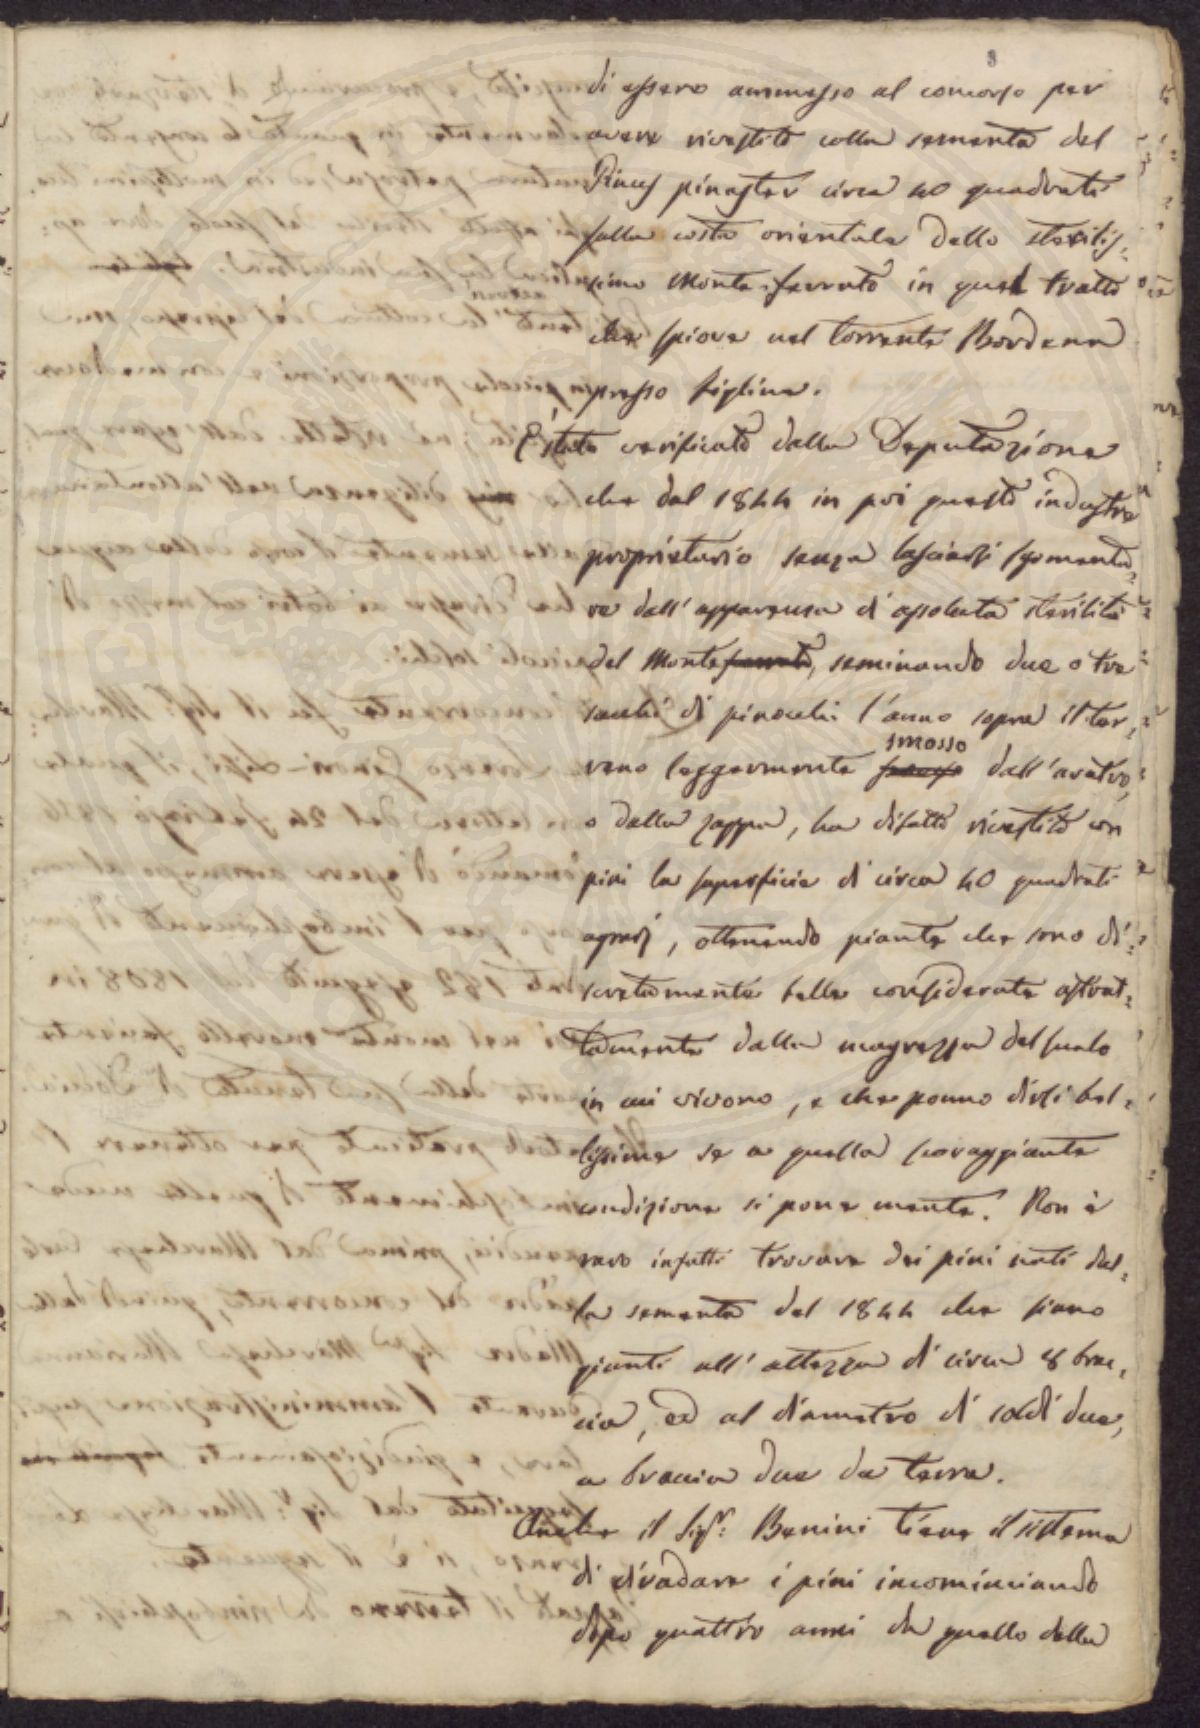 di essere ammesso al concorso per
avere rivestito colla sementa del
Pinus pinaster circa 40 quadrati
sulla costa orientale dello sterilis=
simo Monte-ferrato in quel tratto
che spiove nel torrente Bardena
presso Figline.
È stato verificato dalla Deputazione
che dal 1844 in poi questo industre
proprietario senza lasciarsi sgomenta=
re dall'apparenza di assoluta sterilità
del Monteferrato, seminando due o tre
sacchi di pinocchi l'anno sopra il ter=
reno leggermente smosso dall'aratro,
o dalla zappa, ha difatto rivestito con
pini la superficie di circa 40 quadrati
agrarj, ottenendo piante che sono di=
scretamente belle considerate astrat=
tamente dalla magrezza del suolo
in cui vivono, e che ponno dirsi bel=
lissime se a quella scoraggiante
condizione si pone mente. Non è
raro infatti trovare dei pini nati dal=
la sementa del 1844 che siano
giunti all'altezza di circa 8 brac=
cia, ed al diametro di soldi due,
a braccia due da terra.
Anche il Sigr: Benini tiene il sistema
di diradare i pini incominciando
dopo quattro anni da quello della